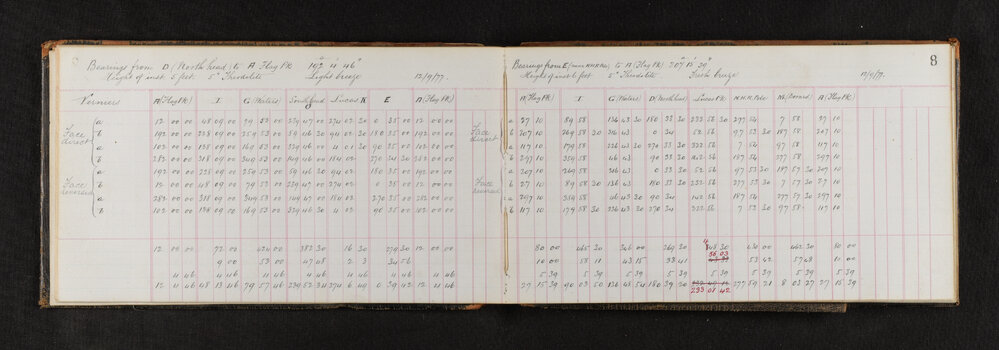 Bearings from D (North head) to A Flag Plc
Height of inst 5 feet 5" Theodolite Light breeze 12/9/77.
Verniers A (Flag Plc) I G (Waters) South head Lucas E A (Flag Plc)
Face direct
a 12 00 00 48 09 00 79 53 00 239 47 00 274 02 30 0 35 00 12 00 00
b 192 00 00 228 09 00 259 53 00 59 46 30 94 02 30 180 35 00 192 00 00
a 102 00 00 138 09 00 169 53 00 329 46 00 4 01 30 90 35 00 102 00 00
b 282 00 00 318 09 00 349 53 00 149 46 00 184 02 270 34 30 282 00 00
Face reversed
a 192 00 00 228 09 00 259 53 00 59 46 30 94 02 180 35 00 192 00 00
b 12 00 00 48 09 00 79 53 00 239 47 00 274 02 0 35 00 12 00 00
a 282 00 00 318 09 00 349 53 00 149 47 00 184 02 270 35 00 282 00 00
b 102 00 00 138 09 00 169 53 00 329 46 30 4 02 90 35 00 102 00 00
12 00 00 72 00 424 00 16 30 279 30 12 00 00
9 00 53 00 47 48 2 3 34 56
4 46 4 46 4 46 4 46 4 46 4 46 4 46
12 4 46 48 13 46 79 57 46 239 52 34 274 6 49 0 39 42 12 4 46
8
Bearings from E to A (Flag Plc) 207° 15' 39"
Height of inst 6 feet 5" Theodolite Fresh breeze 12/9/77.
A (Flag Plc) I G (Waters) D (North head) Lucas Plc Pole A (Flag Plc)
Face direct
a 27 10 89 58 136 43 30 180 33 30 232 56 30 277 54 7 58 27 10
b 207 10 269 58 30 316 43 0 34 52 56 97 53 30 187 58 207 10
a 117 10 179 58 226 43 30 270 33 30 322 56 7 54 97 58 117 10
b 297 10 359 58 46 43 90 33 30 142 56 187 54 277 58 297 10
Face reversed
a 207 10 269 58 316 43 0 33 30 52 56 97 53 30 187 57 30 207 10
b 27 10 89 58 30 136 43 180 33 30 232 56 277 53 30 7 57 30 27 10
a 297 10 359 58 46 43 30 90 34 142 56 187 54 277 57 30 297 10
b 117 10 179 58 30 226 43 30 270 34 322 56 7 53 30 97 58 117 10
80 00 465 30 346 00 269 30 448 30 430 00 462 30 80 00
10 00 58 11 43 15 33 41 56 03 53 45 57 48 10 00
5 39 5 39 5 39 5 39 5 39 5 39 5 39 5 39
27 15 39 90 03 50 136 48 54 180 39 20 277 59 21 8 03 27 27 15 39
233 01 42